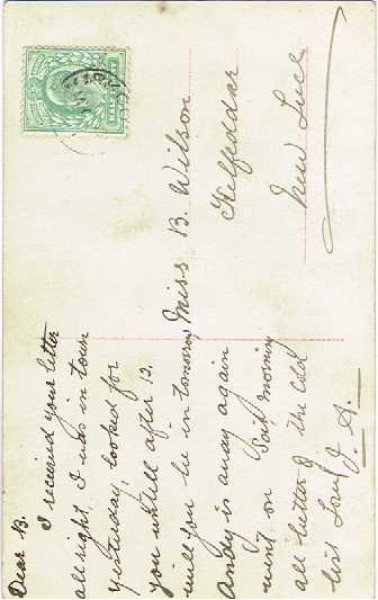 Dear B.
I received your letter
allright, I was in town
yesterday, looked for
you untill after 13.
will you be in tomorrow
Andy is away again
went on Sat, morning
all better I the Cold
Love J. A.
Miss B. Wilson
Kilfeddar
New Luce